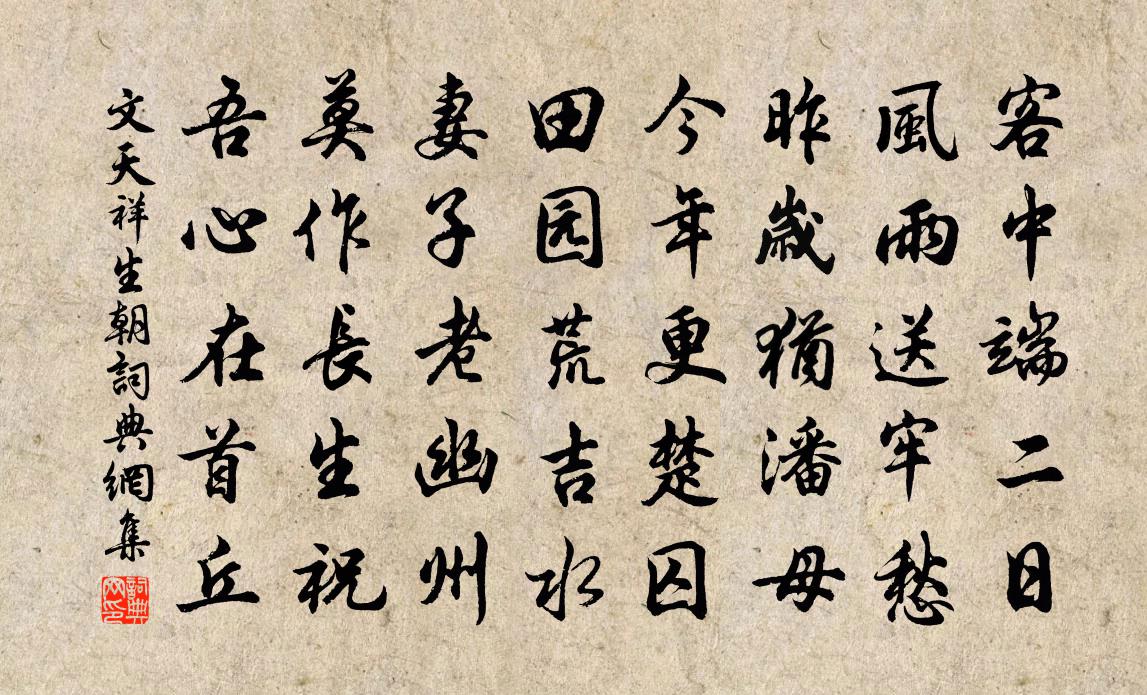 客中端二日
風雨送牢愁
昨歲猶潘母
今年更楚囚
田园荒吉水
妻子老幽州
莫作長生祝
吾心在首丘
文天祥生朝詞典網集
詞典網印